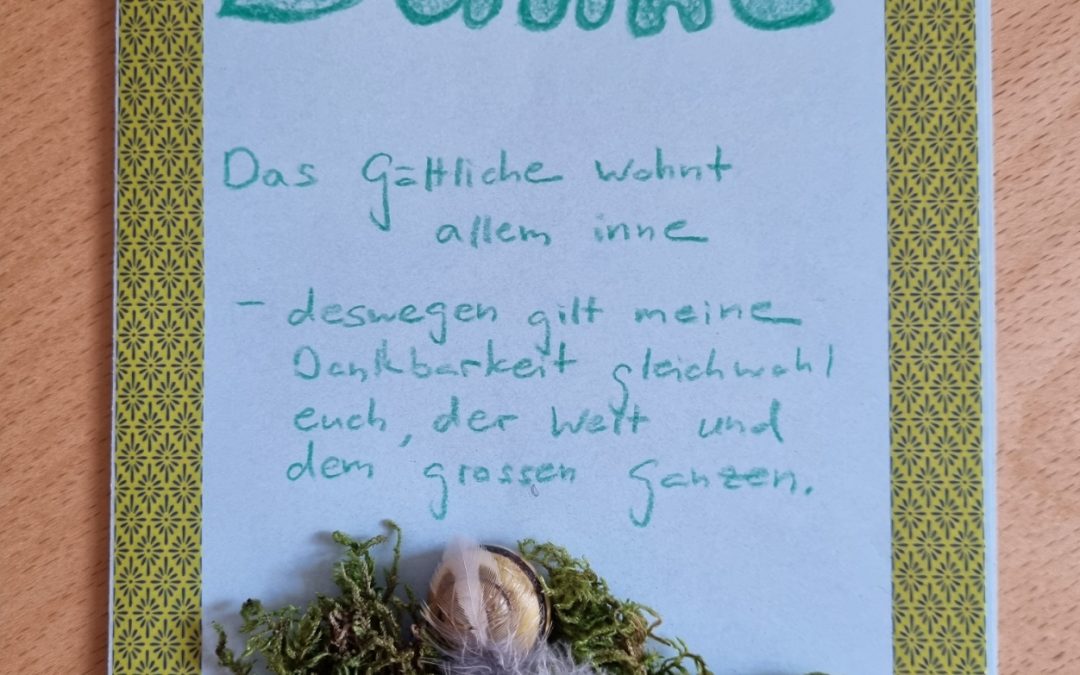 Danke
Das Göttliche wohnt
allem inne
- deswegen gilt meine
Dankbarkeit gleichwohl
euch, der Welt und
dem grossen Ganzen.